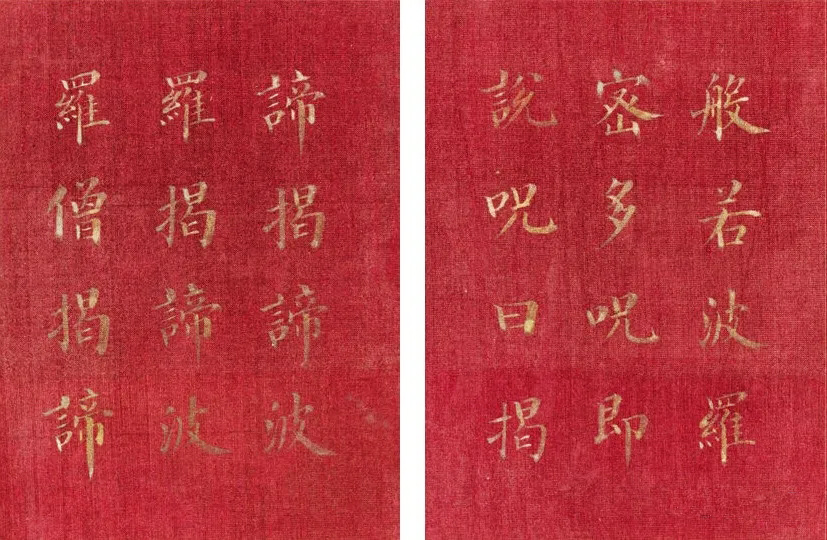 般若波羅
密多呪即
說呪曰揭
諦揭諦波
羅揭諦波
羅僧揭諦